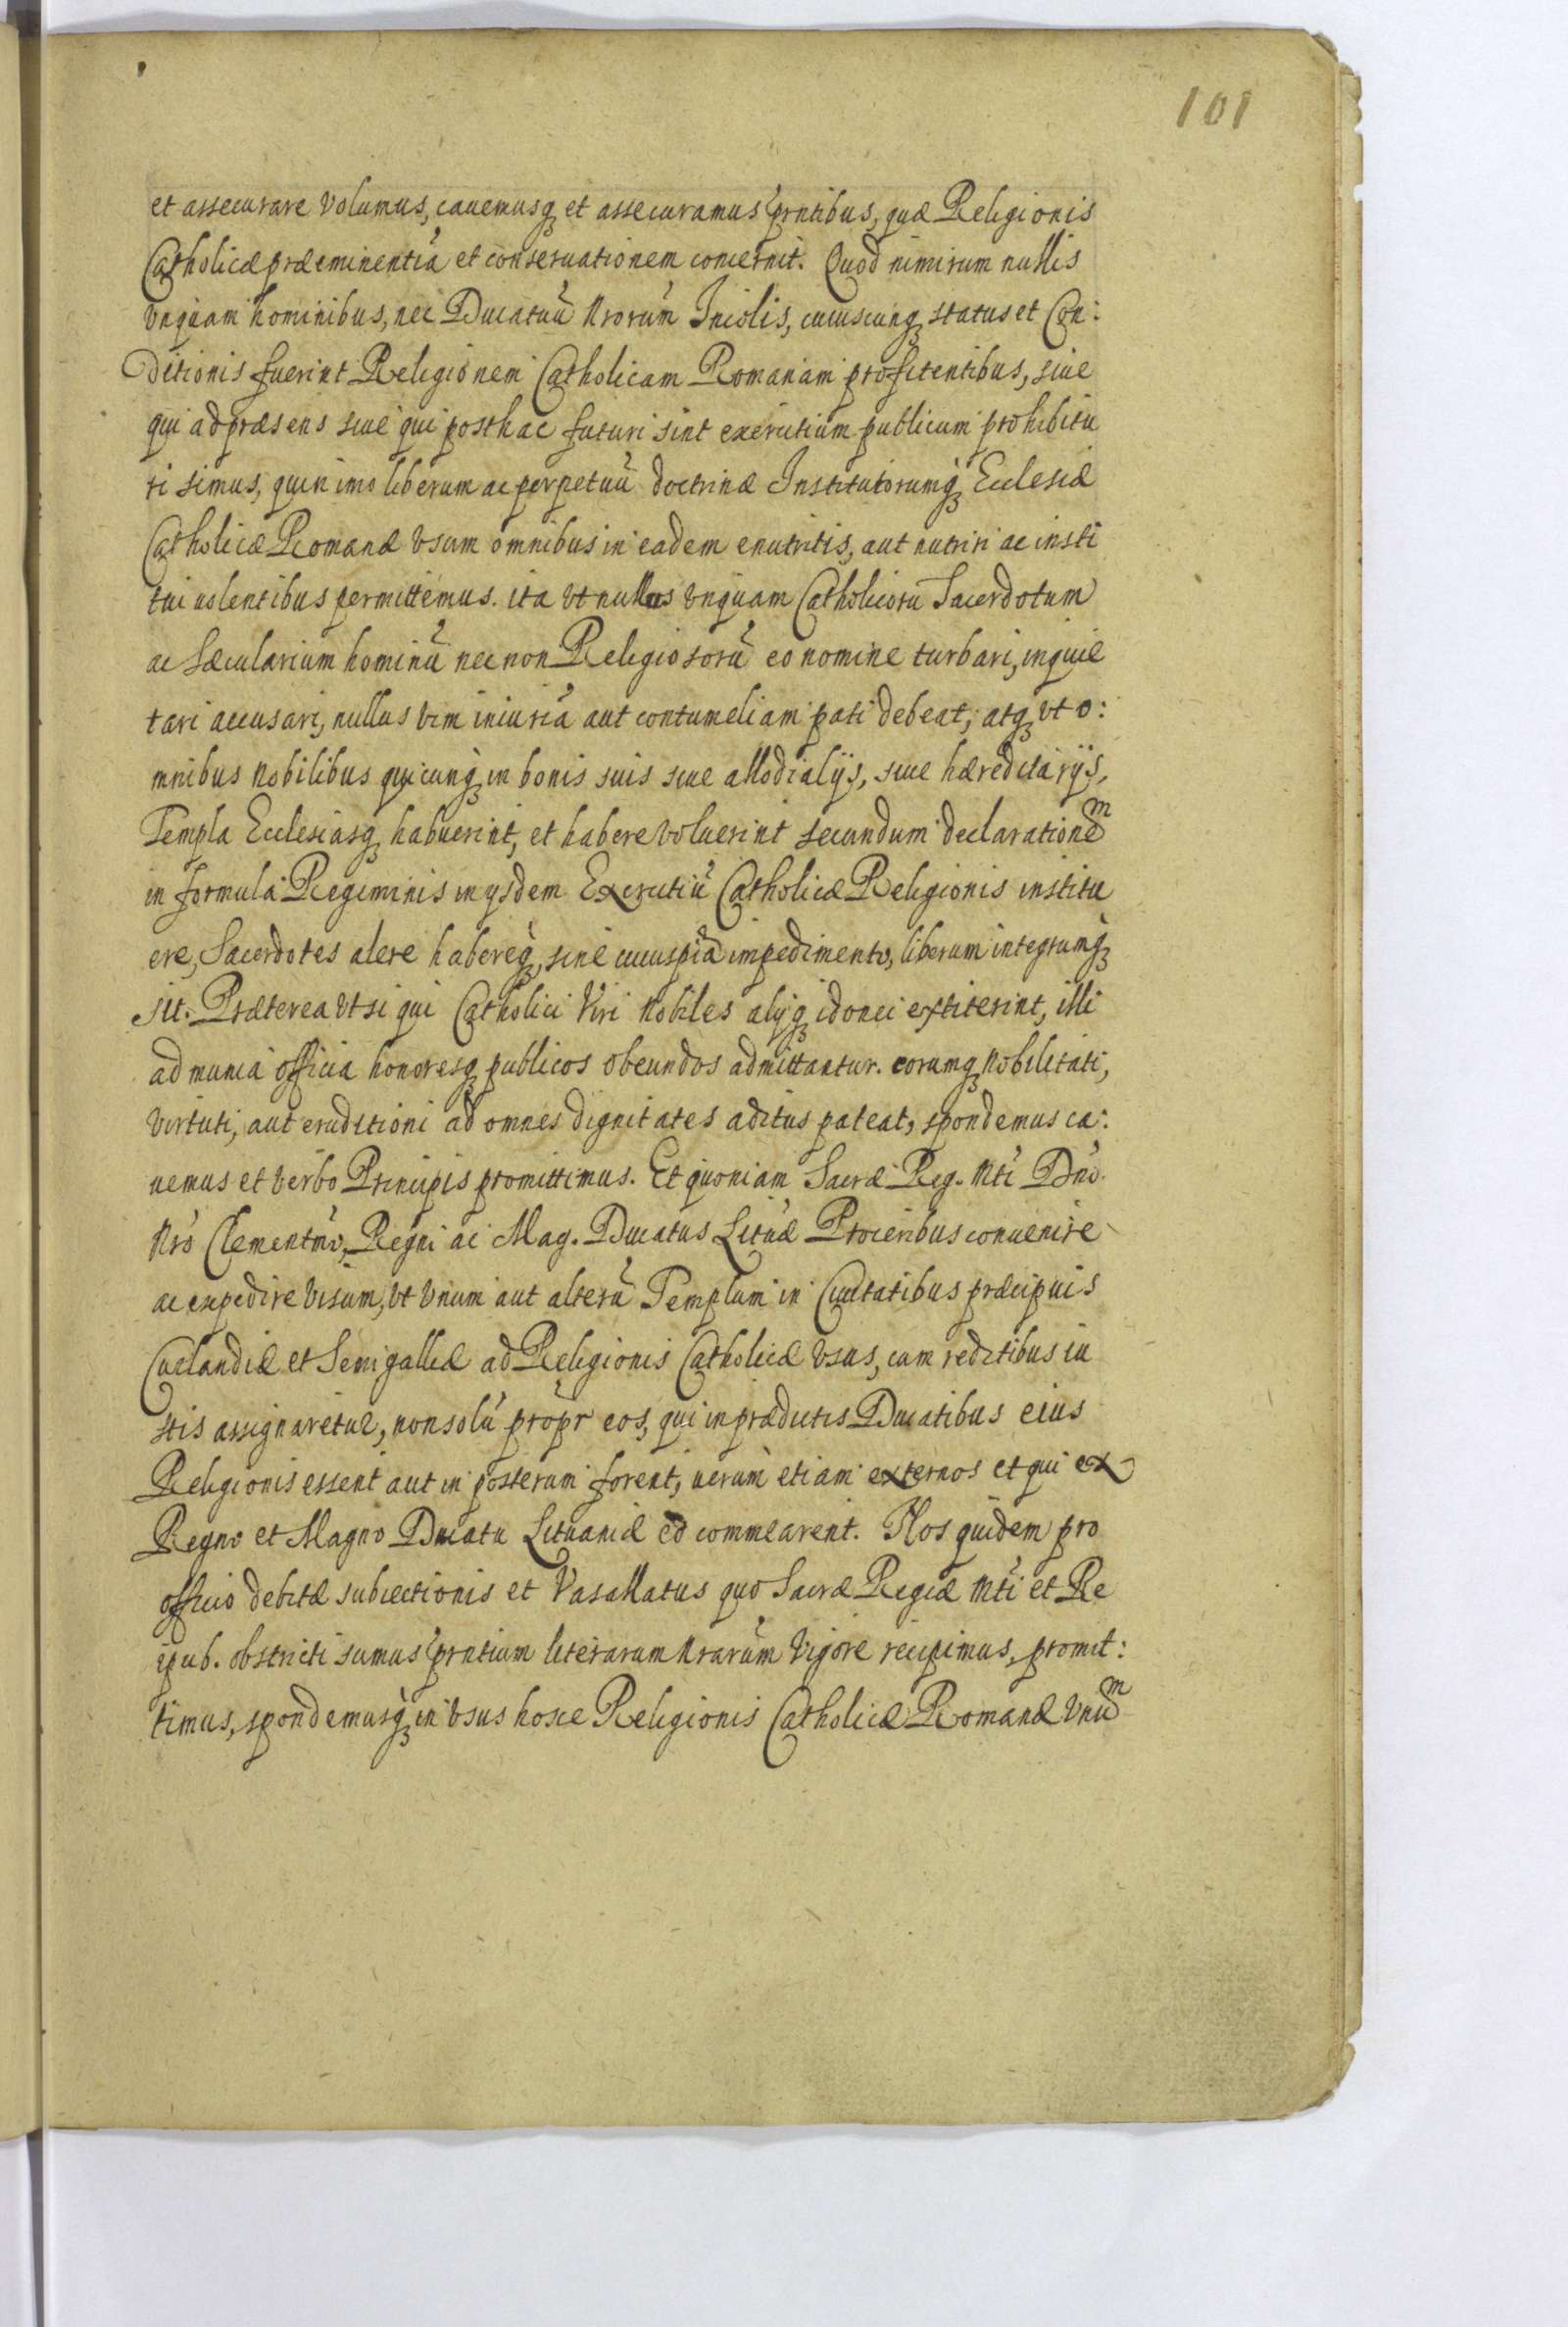 101
et assecurare volumus, cauemusq₃ et assecuramus p̃ntibus, quæ Religionis
Catholicæ præeminentiã et conseruationem concernit. Quod nimirum nullis
vnquam hominibus, nec Ducatuũ Nrorũm Incolis, cuiuscunq₃ status et Con:
ditionis fuerint Religionem Catholicam Romanam profitentibus, siue
qui ad præsens siue qui posthac futuri sint exercitium publicum prohibitu
ri simus, quin imo liberum ac perpetuũ doctrinæ Institutorumq₃ Ecclesiæ
Catholicæ Romanæ vsum omnibus in eadem enutritis, aut nutriri ac insti
tui uolentibus permittemus. ita vt nullus vnquam Catholicoru Sacerdotum
ac sæcularium hominũ nec non Religiosorũ eo nomine turbari, inquie
tari accusari, nullus vim iniuriã aut contumeliam pati debeat, atq₃ vt o:
mnibus Nobilibus quicunq₃ in bonis suis siue allodialijs, siue hæreditarijs,
Templa Ecclesiasq₃ habuerint, et habere voluerint secundum declarationem
in formula Regiminis in ijsdem Exercitiũ Catholicæ Religionis institu
ere, Sacerdotes alere habereq₃, sine cuiuspiã impedimento, liberum integrumq₃
sit. Præterea vt si qui Catholici Viri Nobiles alijq₃ idonei extiterint, illi
ad munia officia honoresq₃ publicos obeundos admittantur. eorumq₃ Nobilitati,
virtuti, aut eruditioni ad omnes dignitates aditus pateat, spondemus ca:
uemus et verbo Principis promittimus. Et quoniam Sacræ Reg. Mti Dño
Nrõ Clementmo, Regni ac Mag. Ducatus Lituæ Proceribus conuenire
ac expedire visum, vt vnum aut alterũ Templum in Ciuitatibus præcipuis
Curlandiæ et Semigalliæ ad Religionis Catholicæ vsus, cum reditibus iu
stis assignaretur, non solũ prop̃r eos, qui in prædictis Ducatibus eius
Religionis essent aut in posterum forent, uerum etiam externos et qui ex
Regno et Magno Ducatu Lituaniæ eo commearent. Nos quidem pro
officio debitæ subiectionis et Vasallatus quo Sacræ Regiæ Mti et Re
ipub. obstricti sumus p̃ntium literarum Nrarũm vigore recipimus, promit:
timus, spondemusq₃ in vsus hosce Religionis Catholicæ Romanæ vnum